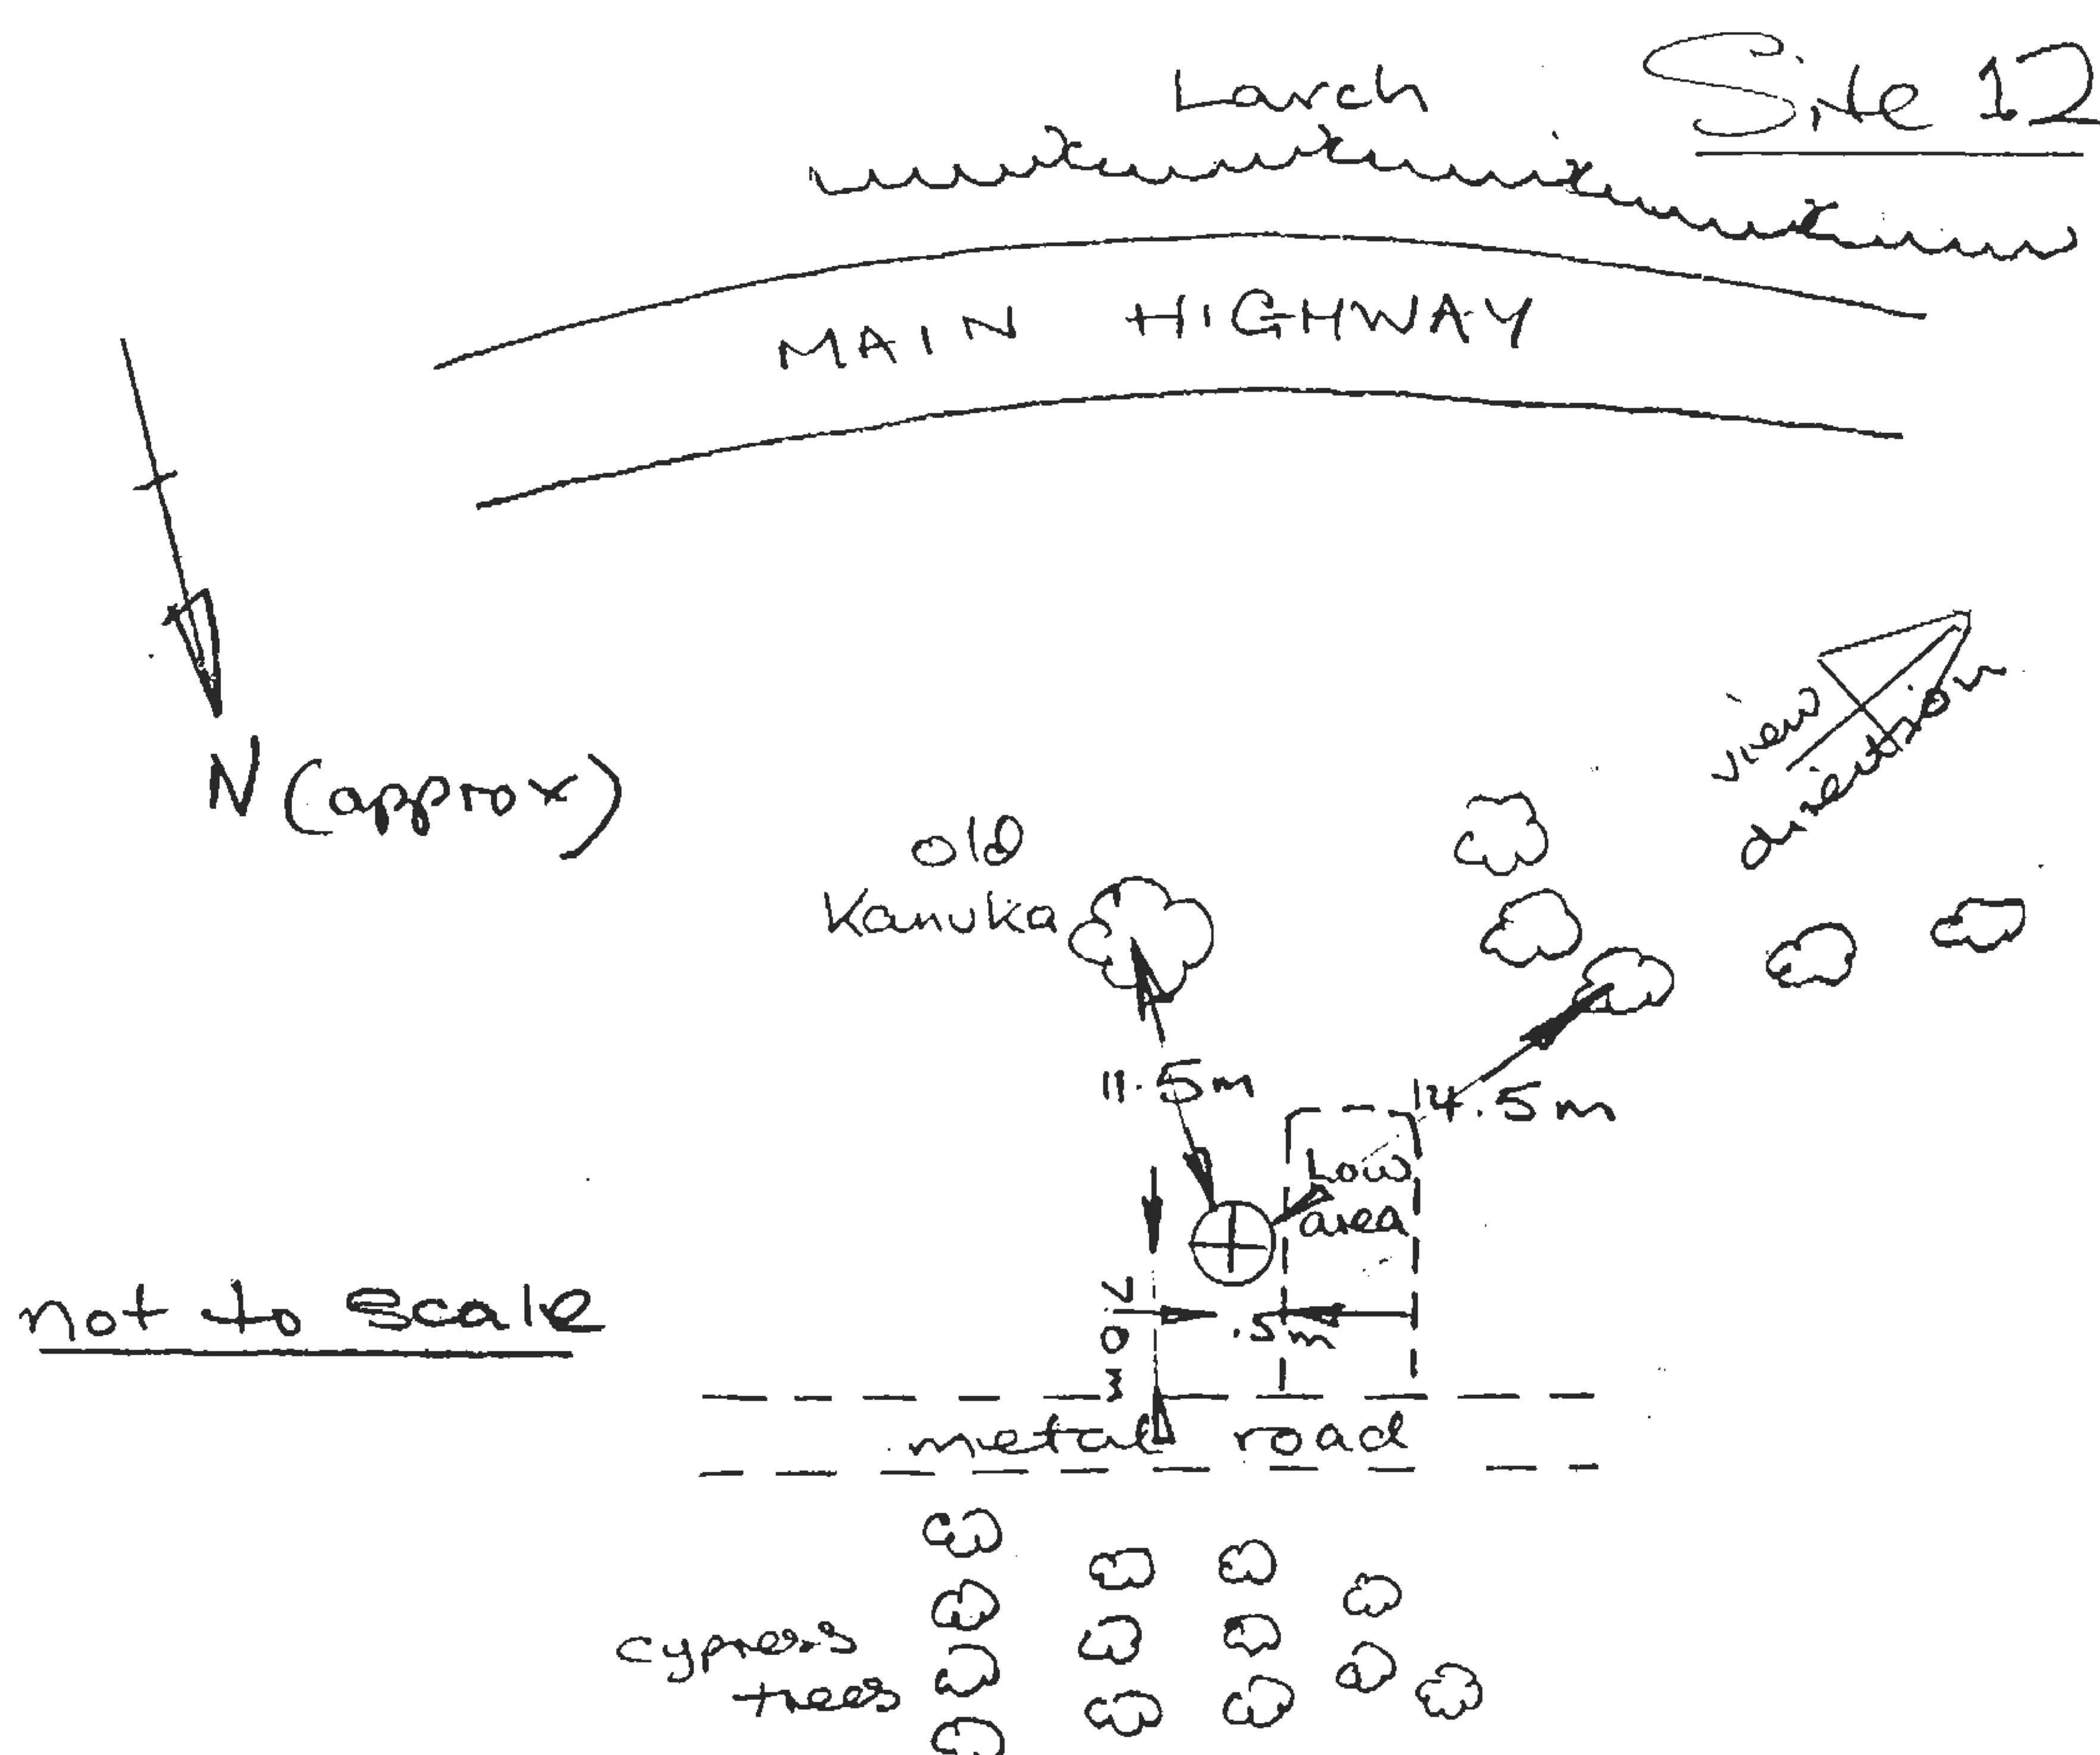 Site 12
Larch
MAIN HIGHWAY
N (approx)
view
direction
old
Kanuka
11.5m
14.5m
Low
area
.5m
not to scale
metal road
cypress
trees